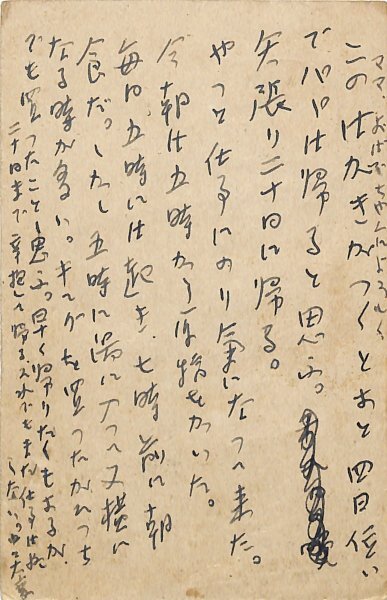 ママ、おばちゃんによろしく
このはがきがつくとあと四日位い
でパパは帰ると思ふ。
矢張り二十日に帰る。
やっと仕事にのり氣になって来た。
今朝は五時から原稿をかいた。
毎日五時には起き、七時前に朝
食だ。しかし五時に湯に入って又横に
なる時が多い。キングを買ったがうち
でも買ったことゝ思ふ。早く帰りたくもあるが、
二十日まで辛抱して帰る